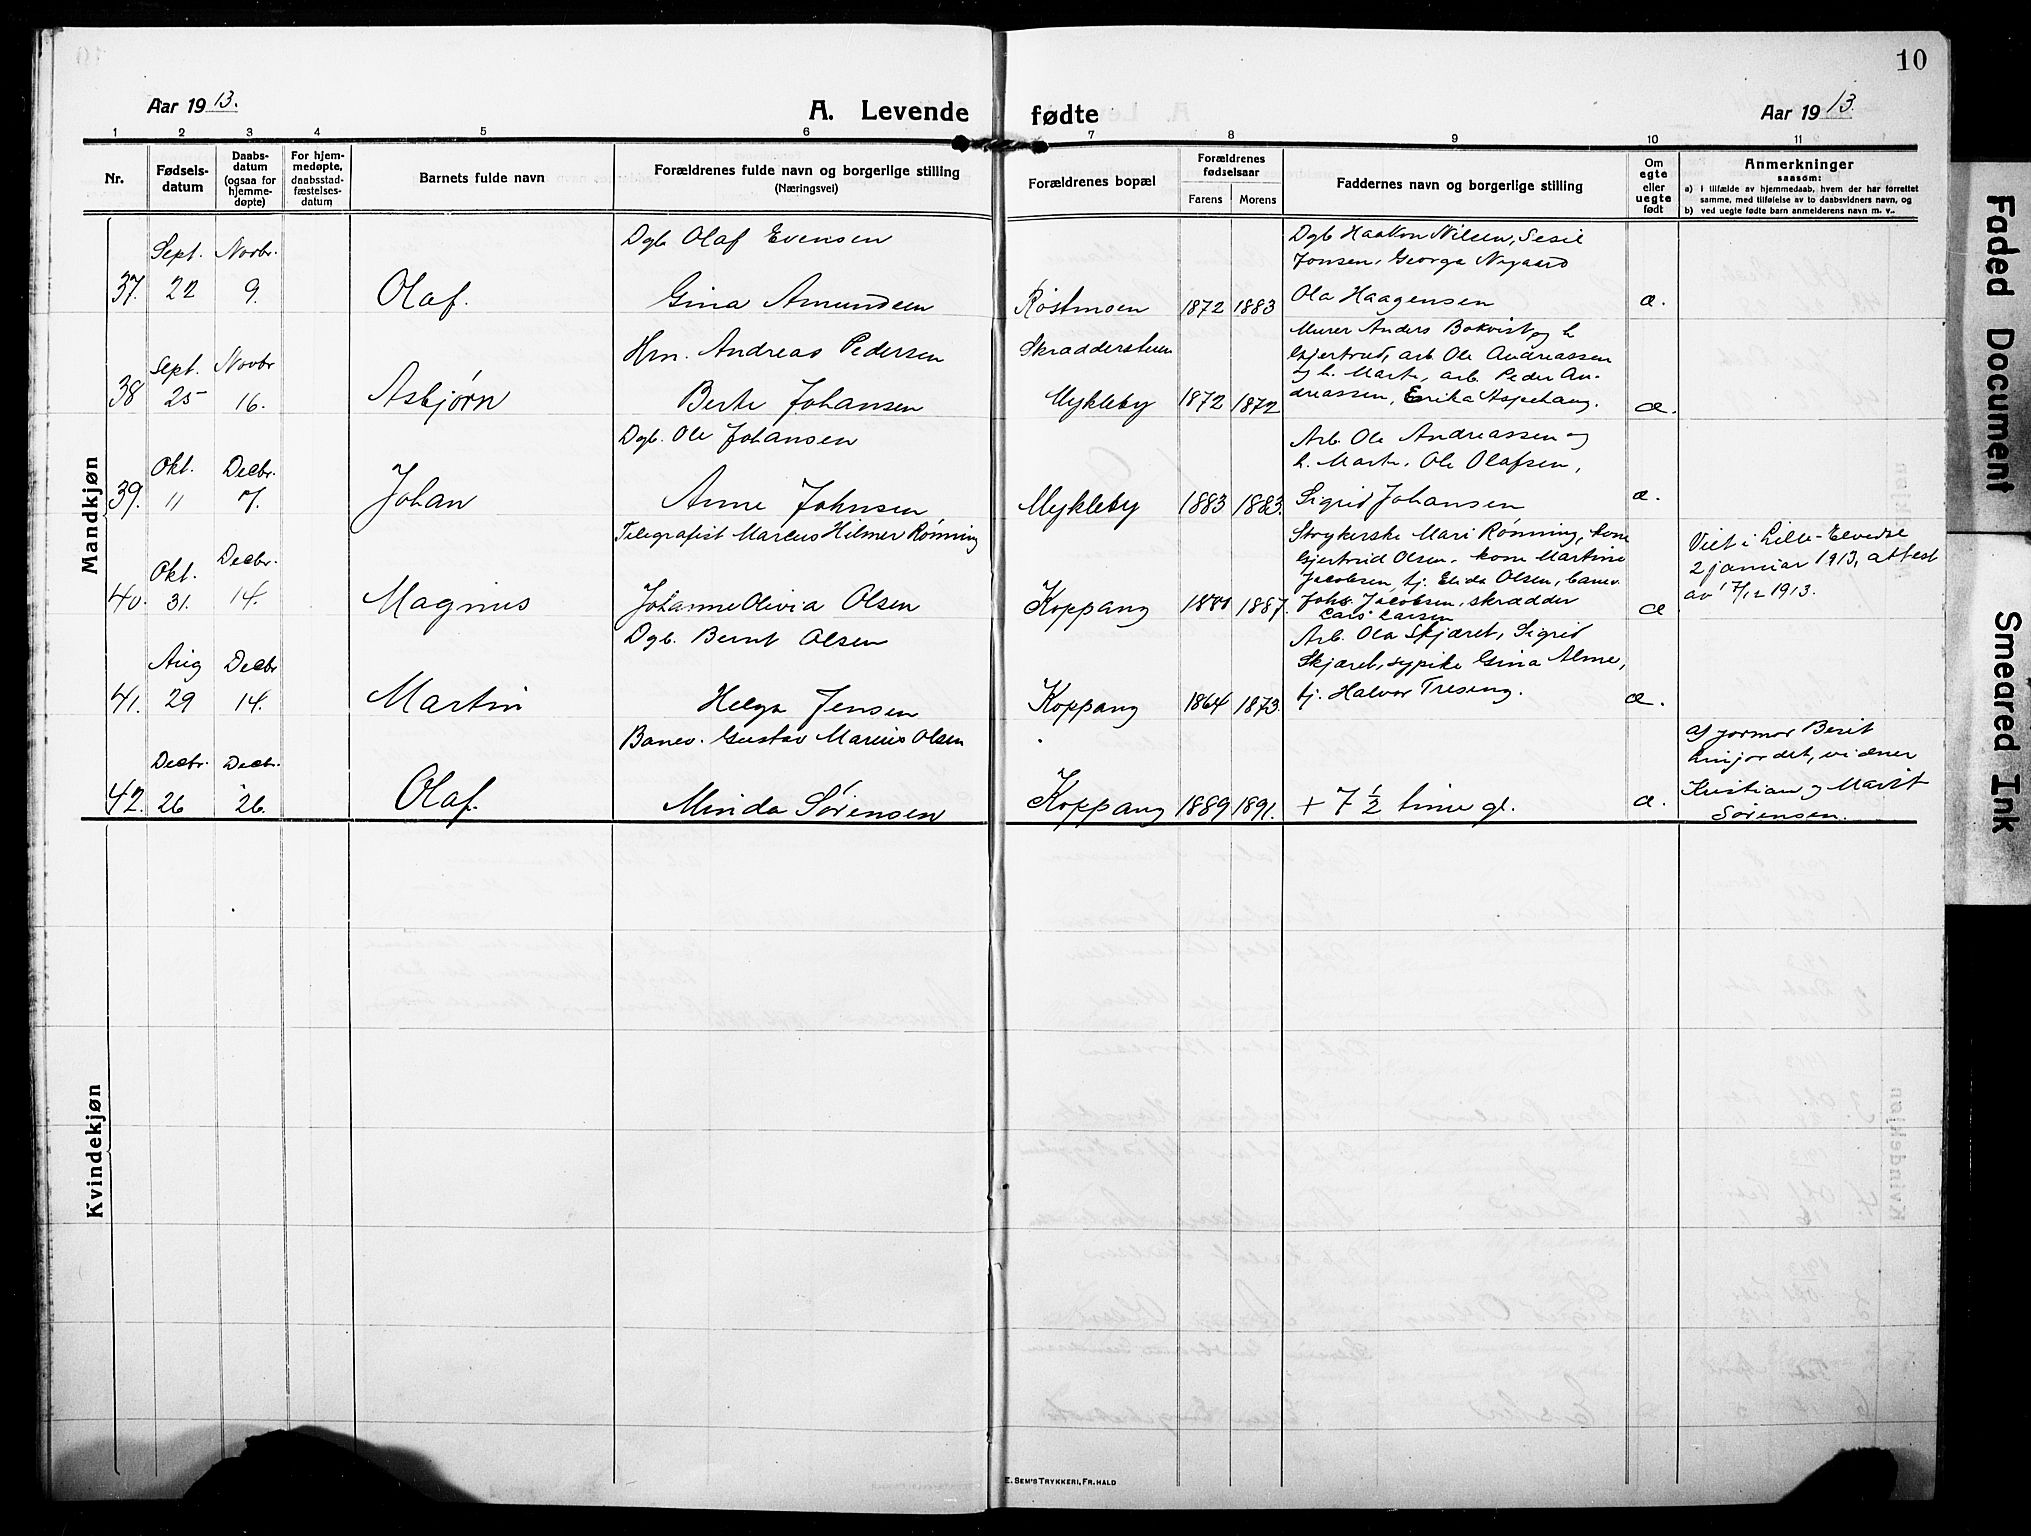 10
Aar 1913.
A. Levende fødte
Aar 1913.
1 2 3 4 5 6 7 8 9 10 11
Nr.
Fødsels-
datum
Daabs-
datum
(ogsaa for
hjemme-
døpte)
For hjem-
medøpte,
daabsstad-
fæstelses-
datum
Barnets fulde navn
Forældrenes fulde navn og borgerlige stilling
(Næringsvei)
Forældrenes bopæl
Forældrenes
fødselsaar
Farens Morens
Faddernes navn og borgerlige stilling
Om
egte
eller
uegte
født
Anmerkninger
saasom:
a) i tilfælde av hjemmedaab, hvem der har forrettet
samme, med tilføielse av to daabsvidners navn, og
b) ved uegte fødte barn anmelderens navn m. v.
Mandkjøn
37. Sept. 22 Novbr. 9. Olaf.
Dgb. Olaf Evensen
Gina Amundsen
Røstmoen 1872 1883
Dgb Haakon Nilsen, Sesil
Jonsen, Georga Nygaard
Ola Haagensen
æ.
38 Sept. 25 Novbr 16. Asbjørn
Hm. Andreas Pedersen
Berte Johansen
Skradderstuen
Mykleby 1872 1872
Murer Anders Bokvist og h.
Gjertrud, arb. Ole Andreassen
og h. Marte, arb. Peder An-
dreassen, Erika Aspehaug.
æ.
39. Okt. 11 Decbr. 7. Johan
Dgb. Ole Johansen
Anne Johnsen
Mykleby 1883 1883.
Arb. Ole Andreassen og
h. Marte. Ole Olafsen,
Sigrid Johansen
æ.
40. Okt. 31. Decbr. 14. Magnus
Telegrafist Marcus Hilmer Rønning
Johanne Olivia Olsen
Koppang 1887.
Strykerske Mari Rønning, kone
Gjertrud Olsen, kone Martine
Jacobsen, tj. Elida Olsen, banev.
Johs. Jacobsen, skrædder
Lars Larsen
æ
Viet i Lille-Elvedal
2 januar 1913, attest
av 17/12 1913.
41. Aug 29 Decbr 14. Martin
Dgb. Bernt Olsen
Helga Jensen
Koppang 1864 1873.
Arb. Ola Skjæret, Sigrid
Skjæret, sypike Gina Alme,
tj. Halvor Treseng.
æ.
42. Decbr. 26 Decbr. 26. Olaf.
Banev. Gustav Marius Olsen
Minda Sørensen
Koppang 1889 1891.
+ 7 1/2 time gl.
æ.
af jormor Berit
Linjordet, vidner
Kristian og Marit
Sørensen.
Kvindekjøn
E. SEM'S TRYKKERI, FR. HALD
Faded Document
Smeared Ink